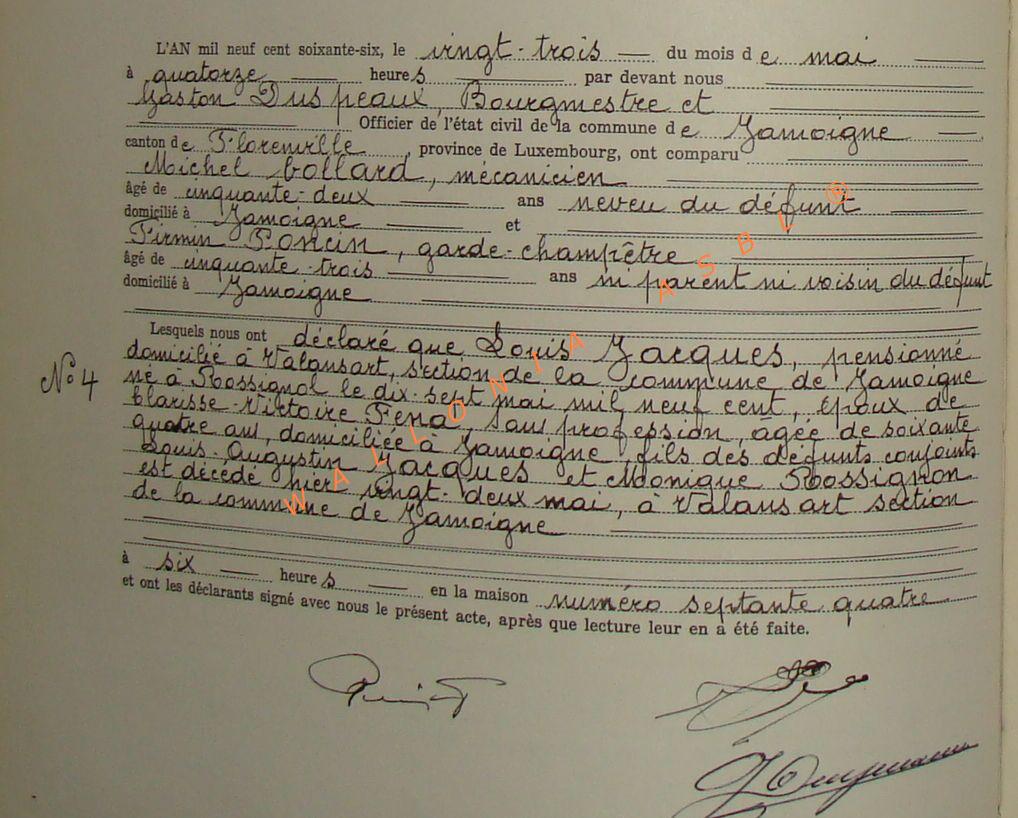 L'AN mil neuf cent soixante-six, le vingt-trois du mois de mai
à quatorze heures par devant nous
Gaston Duspeaux, Bourgmestre et
Officier de l'état civil de la commune de Jamoigne
canton de Florenville, province de Luxembourg, ont comparu
Michel Collard, mécanicien
âgé de cinquante-deux ans neveu du défunt
domicilié à Jamoigne et
Firmin Poncin, garde-champêtre
âgé de cinquante-trois ans ni parent ni voisin du défunt
domicilié à Jamoigne
Lesquels nous ont déclaré que Louis Jacques, pensionné
N° 4 domicilié à Valansart, section de la commune de Jamoigne
né à Rossignol le dix-sept mai mil neuf cent, époux de
Clarisse-Victoire, sans profession, âgée de soixante
quatre ans, domiciliée à Jamoigne, fils des défunts conjoints
Louis-Augustin Jacques et Monique Rossignon
est décédé hier vingt-deux mai, à Valansart section
de la commune de Jamoigne
à six heures en la maison numéro septante quatre
et ont les déclarants signé avec nous le présent acte, après que lecture leur en a été faite.
WALLONIA ASBL ®